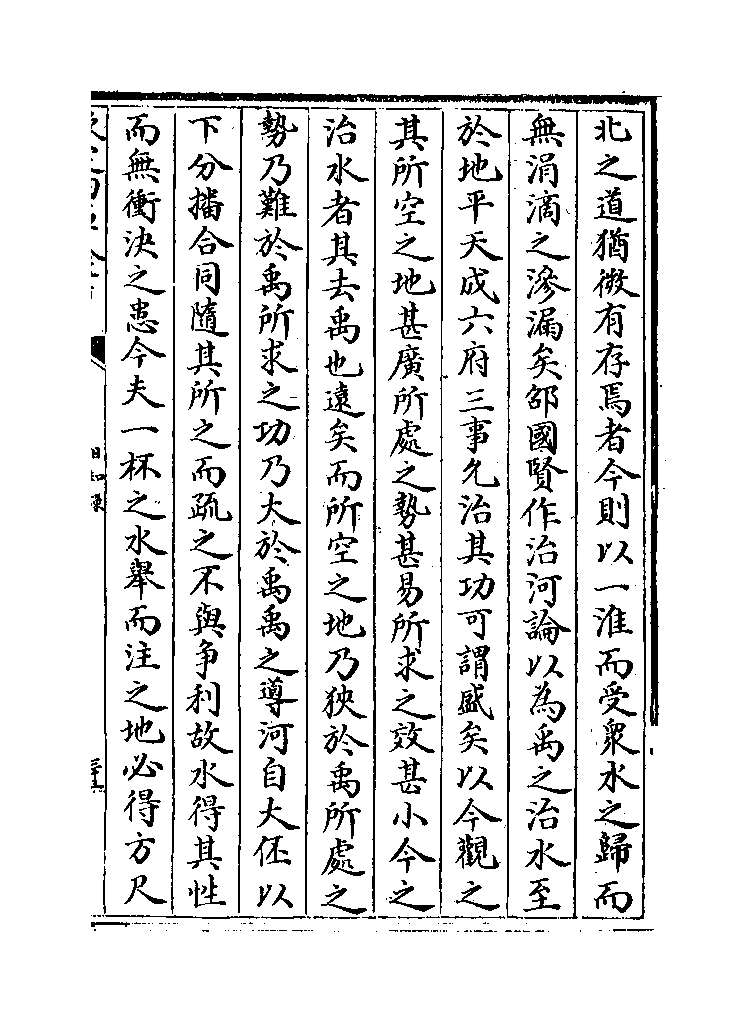 北之道猶微有存焉者今則以一淮而受衆水之歸而
無涓滴之滲漏矣邵國賢作治河論以為禹之治水至
於地平天成六府三事允治其功可謂盛矣以今觀之
其所空之地甚廣所處之勢甚易所求之效甚小今之
治水者其去禹也遠矣而所空之地乃狹於禹所處之
勢乃難於禹所求之功乃大於禹禹之導河自大伾以
下分播合同隨其所之而疏之不與争利故水得其性
而無衝決之患今夫一杯之水舉而注之地必得方尺
日知錄